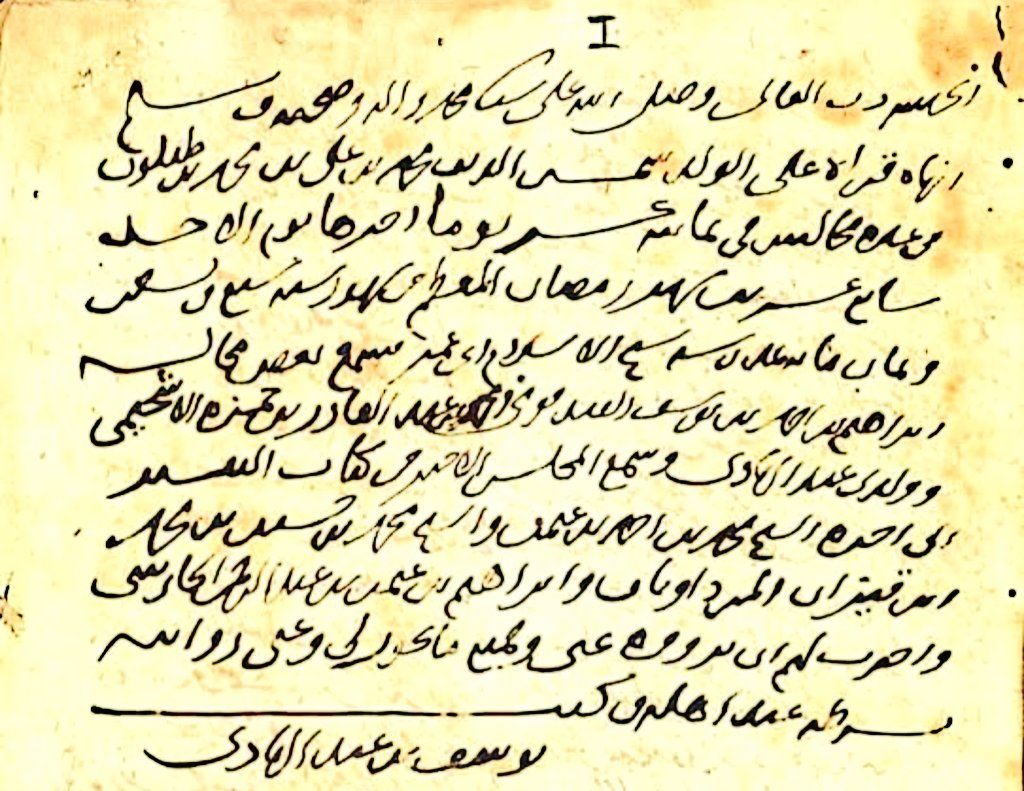 I
الحمد لله رب العالمين وصلى الله على سيدنا محمد واله وصحبه وسلم
انهاه قراة على الولد شمس الدين محمد بن علي بن محمد بن طولون
في عدة مجالس في ثمانية عشر يوما اخرها يوم الاحد
سابع عشرين شهر رمضان المعظم من شهور سنة سبع وتسعين
وثمان مائة وسمع بعض مجالسه
ابراهيم بن احمد بن يوسف عبد القادر بن حمزة
وولدي عبد الهادي وسمع المجلس الاخير من كتاب
الى اخره الشيخ محمد بن احمد بن عثمان والشيخ محمد بن محمد
المرداويان وابراهيم بن عثمن بن عبد الله
واجزت لهم ان يرووه عني وجميع ما يجوز لي وعني روايته
بشرطه عند اهله وكتب
يوسف بن عبد الهادي